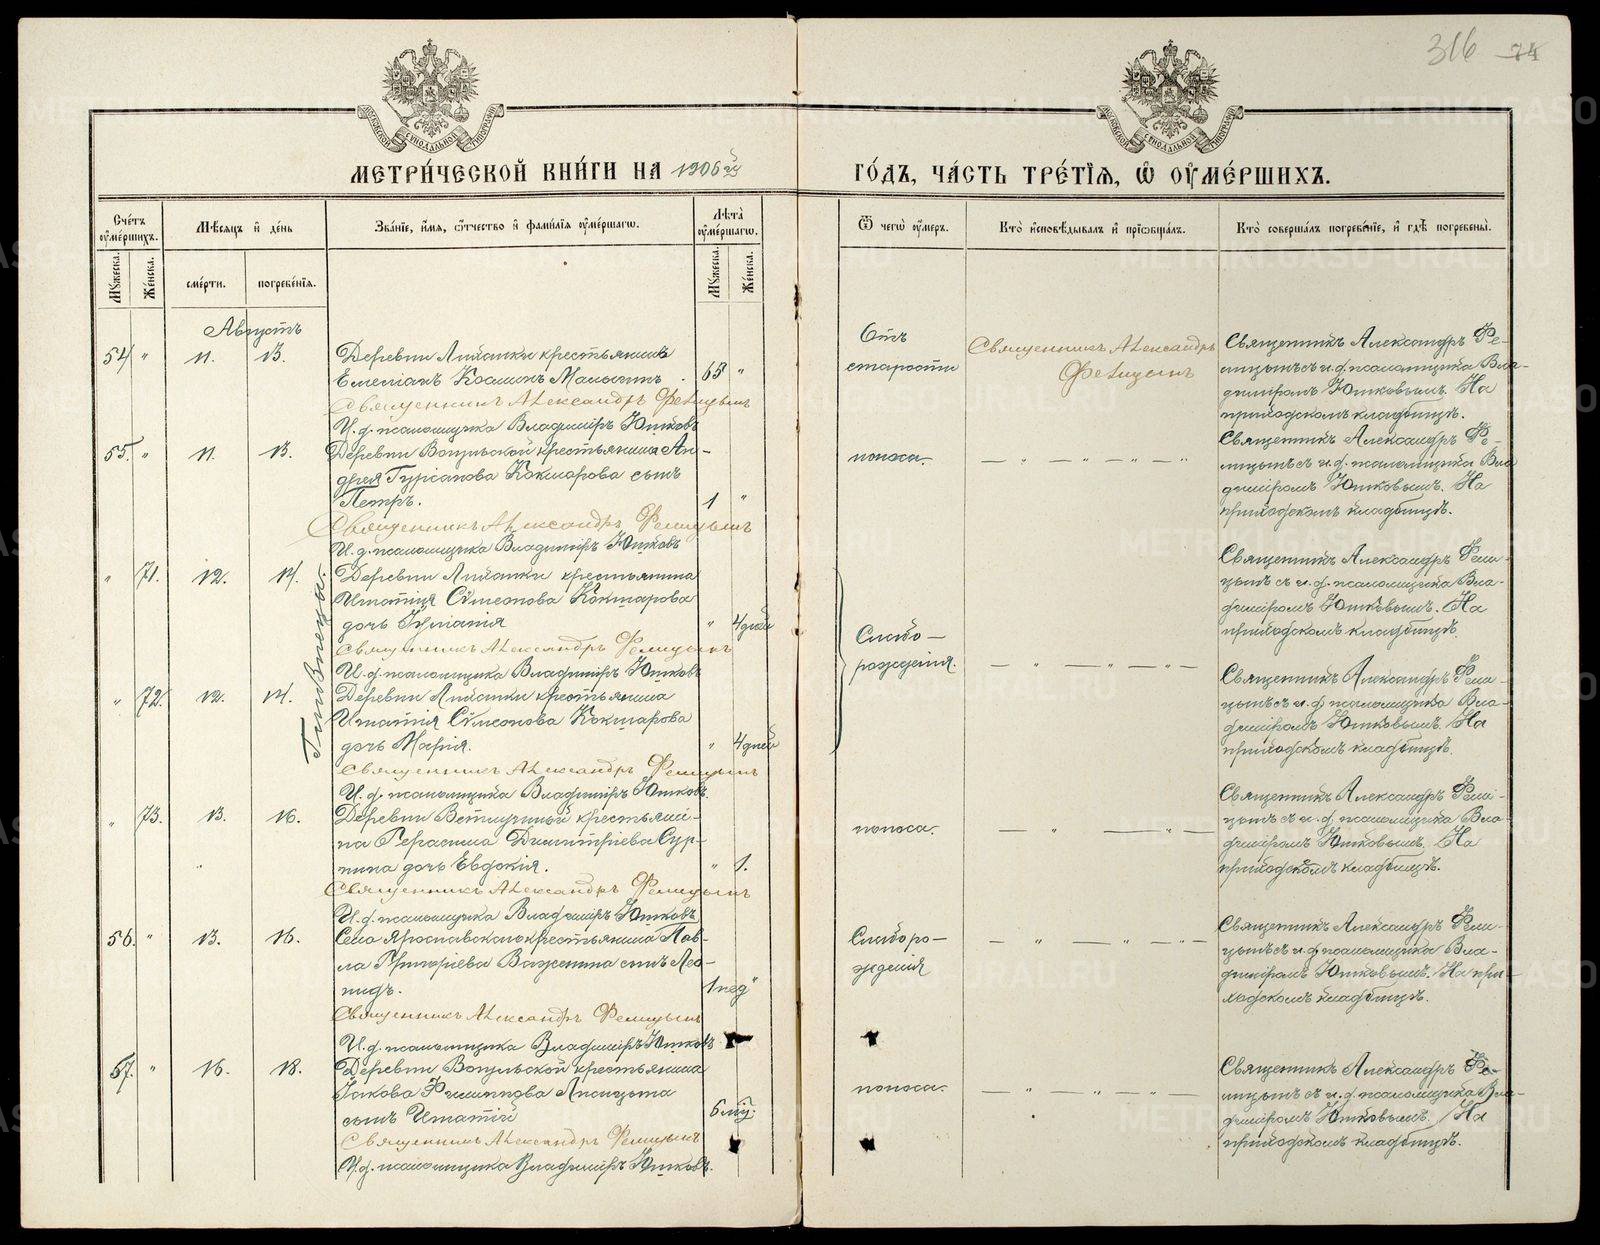 316 74
МЕТРИ́ЧЕСКОЙ КНИ́ГИ НА 1906й
ГО́ДЪ, ЧА́СТЬ ТРЕ́ТІЯ, Ѿ ОУМЕ́РШИХЪ.
Сче́тъ оуме́ршихъ.
Мѣ́сяцъ и҆ де́нь
Зва́ніе, и҆́мя, ѻ҆́тчество и҆ фами́лія оуме́ршагѡ.
Лѣ́та оуме́ршагѡ.
Ѿ чегѡ̀ оу́меръ.
Кто̀ и҆сповѣ́дывалъ и҆ прїѡбща́лъ.
Кто̀ соверша́лъ погребе́ніе, и҆ гдѣ̀ погребены̀.
Му́жеска.
Же́нска.
сме́рти.
погребе́нія.
Му́жеска.
Же́нска.
Августъ
54 " 11. 13.
Деревни Лиханки крестьянинъ
Емеліанъ Косминъ Мальгинъ . 65 "
Священникъ Александръ Фелицынъ
И.д. псаломщика Владиміръ Юшковъ
Отъ
старости
Священникъ Александръ
Фелицынъ
Священникъ Александръ Фе-
лицынъ съ и.д. псаломщика Вла-
диміромъ Юшковымъ. На
приходскомъ кладбищѣ.
55. " 11. 13.
Деревни Вогульской крестьянина Ан-
дрея Гурьанова Кокшарова сынъ
Петръ. 1 "
Священникъ Александръ Фелицынъ
И.д. псаломщика Владиміръ Юшковъ
поноса. — " — " — " — "
Священникъ Александръ Фе-
лицынъ съ и.д. псаломщика Вла-
диміромъ Юшковымъ. На
приходскомъ кладбищѣ.
Близнецы.
" 71. 12. 14.
Деревни Лиханки крестьянина
Игнатія Сѵмеонова Кокшарова
дочь Іуліанія " 4 дней
Священникъ Александръ Фелицынъ
И.д. псаломщика Владиміръ Юшковъ
Слабо-
рожденія. — " — " — " —
Священникъ Александръ Фели-
цынъ съ и.д. псаломщика Вла-
диміромъ Юшковымъ. На
приходскомъ кладбищѣ.
" 72. 12. 14.
Деревни Лиханки крестьянина
Игнатія Сѵмеонова Кокшарова
дочь Марія. " 4 дней
Священникъ Александръ Фелицынъ
И.д. псаломщика Владиміръ Юшковъ.
Священникъ Александръ Фели-
цынъ съ и.д. псаломщика Вла-
диміромъ Юшковымъ. На
приходскомъ кладбищѣ.
" 73. 13. 16.
крестьяни-
на Герасима Димитріева Сур-
нина дочь Евдокія. " 1.
Священникъ Александръ Фелицынъ
И.д. псаломщика Владиміръ Юшковъ
поноса. — " — " —
Священникъ Александръ Фели-
цынъ съ и.д. псаломщика Вла-
диміромъ Юшковымъ. На
приходскомъ кладбищѣ.
56. " 13. 16.
Села Ярославского крестьянина Пав-
ла Григоріева Важенина сынъ Лео-
нидъ. 1 нед "
Священникъ Александръ Фелицынъ
И.д. псаломщика Владиміръ Юшковъ
Слаборо-
жденія — " — " — " —
Священникъ Александръ Фели-
цынъ съ и.д. псаломщика Вла-
диміромъ Юшковымъ. На при-
ходскомъ кладбищѣ.
57. " 16. 18.
Деревни Вогульской крестьянина
Іакова Филиппова Лисицына
сынъ Игнатій 6 мѣ.
Священникъ Александръ Фелицынъ
И.д. псаломщика Владиміръ Юшковъ.
поноса. — " — " — " —
Священникъ Александръ Фе-
лицынъ съ и.д. псаломщика Вла-
диміромъ Юшковымъ. На
приходскомъ кладбищѣ.
METRIKI.GASO-URAL.RU